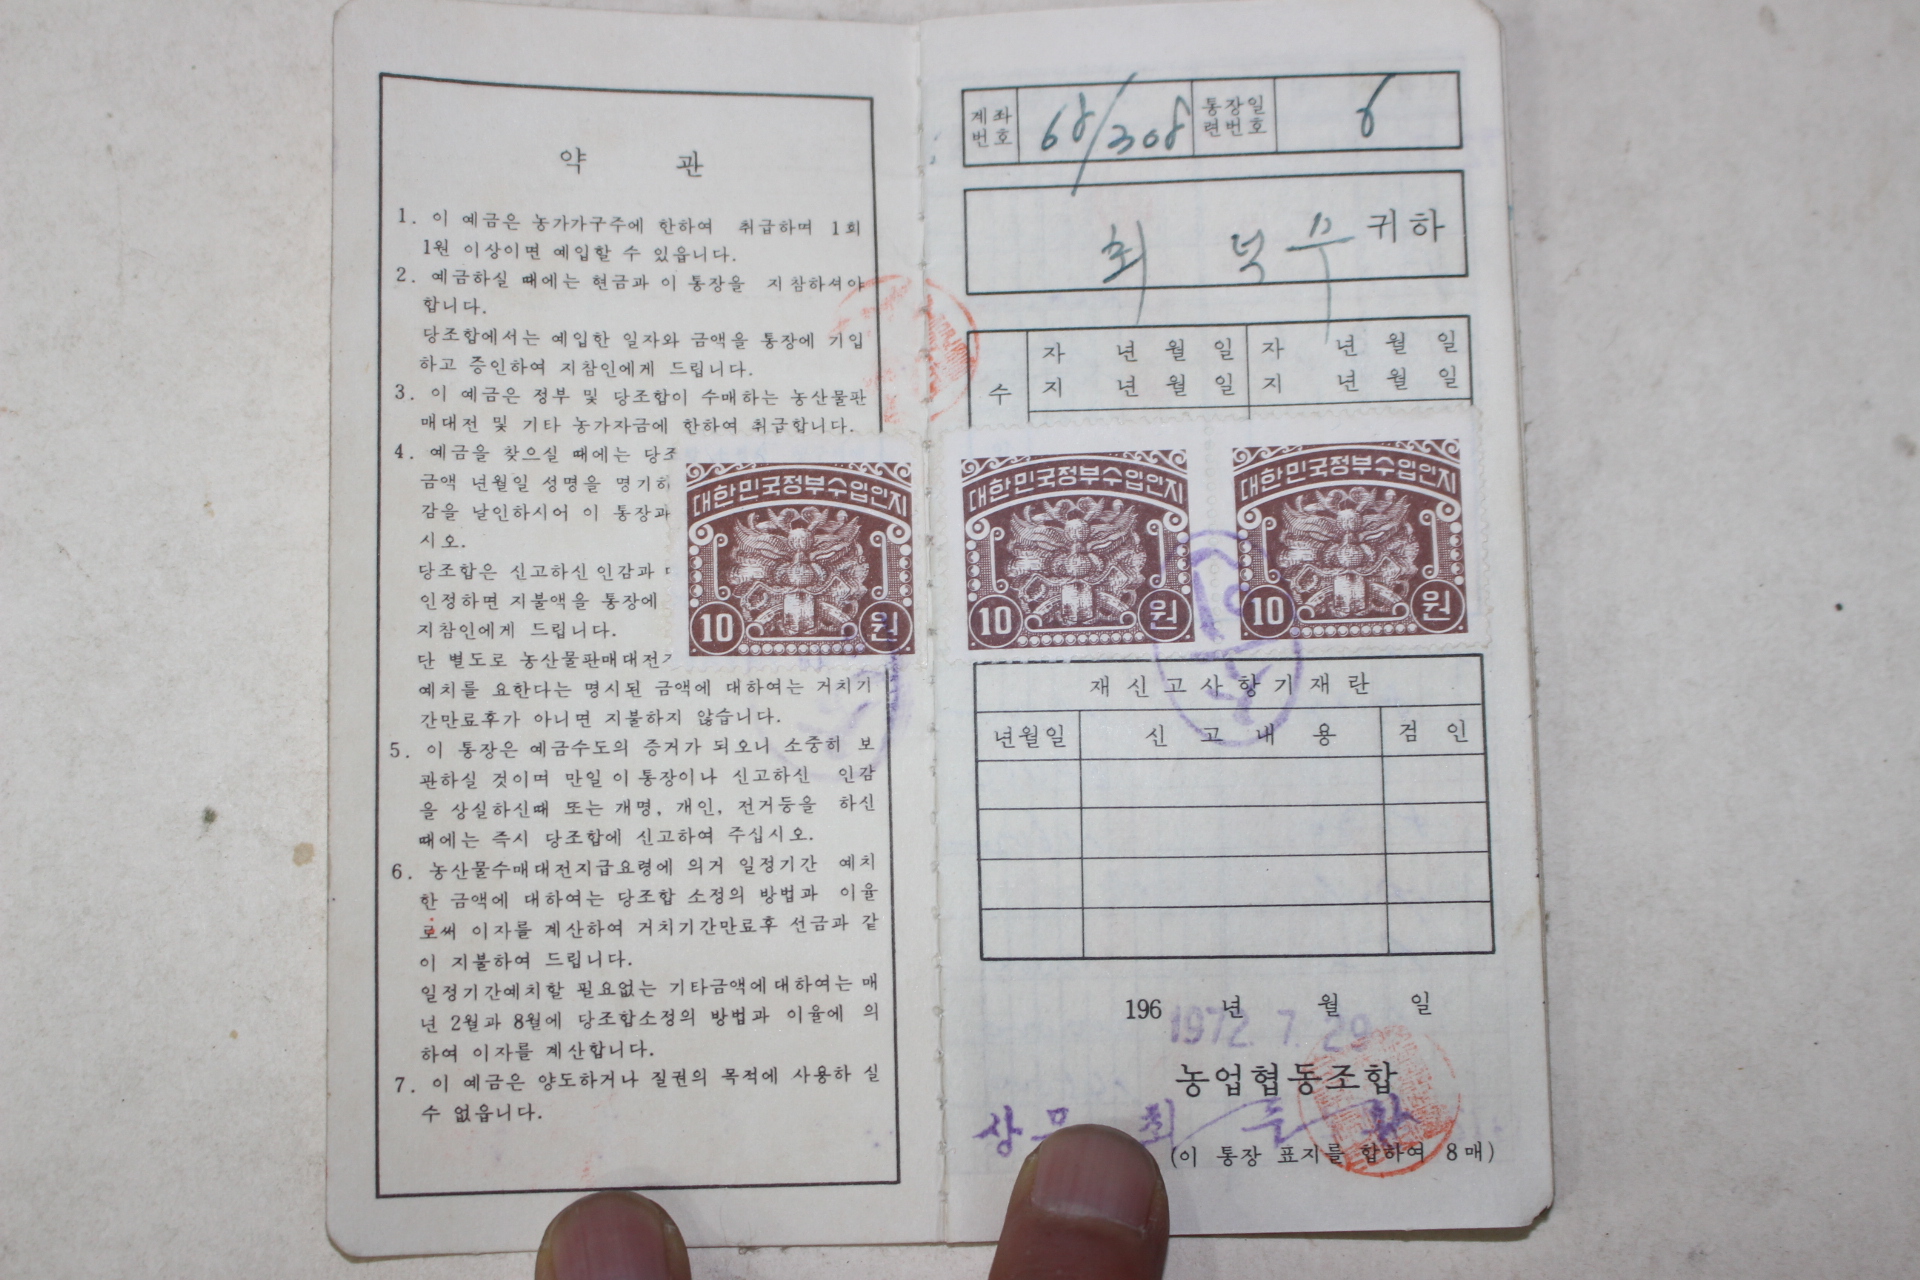 약 관
1. 이 예금은 농가가구주에 한하여 취급하며 1회
1원 이상이면 예입할 수 있읍니다.
2. 예금하실 때에는 현금과 이 통장을 지참하셔야
합니다.
당조합에서는 예입한 일자와 금액을 통장에 기입
하고 증인하여 지참인에게 드립니다.
3. 이 예금은 정부 및 당조합이 수매하는 농산물판
매대전 및 기타 농가자금에 한하여 취급합니다.
4. 예금을 찾으실 때에는
금액 년월일 성명을 명기하
감을 날인하시어 이 통장과
시오.
당조합은 신고하신 인감과
인정하면 지불액을 통장에
지참인에게 드립니다.
단 별도로 농산물판매대전
예치를 요한다는 명시된 금액에 대하여는 거치기
간만료후가 아니면 지불하지 않습니다.
5. 이 통장은 예금수도의 증거가 되오니 소중히 보
관하실 것이며 만일 이 통장이나 신고하신 인감
을 상실하신때 또는 개명, 개인, 전거등을 하신
때에는 즉시 당조합에 신고하여 주십시오.
6. 농산물수매대전지급요령에 의거 일정기간 예치
한 금액에 대하여는 당조합 소정의 방법과 이율
로써 이자를 계산하여 거치기간만료후 선금과 같
이 지불하여 드립니다.
일정기간예치할 필요없는 기타금액에 대하여는 매
년 2월과 8월에 당조합소정의 방법과 이율에 의
하여 이자를 계산합니다.
7. 이 예금은 양도하거나 질권의 목적에 사용하실
수 없읍니다.
대한민국정부수입인지
10 원
계좌번호 68/308 통장일련번호 8
최 덕 수 귀하
수
자 년 월 일 자 년 월 일
지 년 월 일 지 년 월 일
대한민국정부수입인지 대한민국정부수입인지
10 원 10 원
재신고사항기재란
년월일 신 고 내 용 검 인
196 년 월 일
1972. 7. 29
농업협동조합
상 최
(이 통장 표지를 합하여 8매)